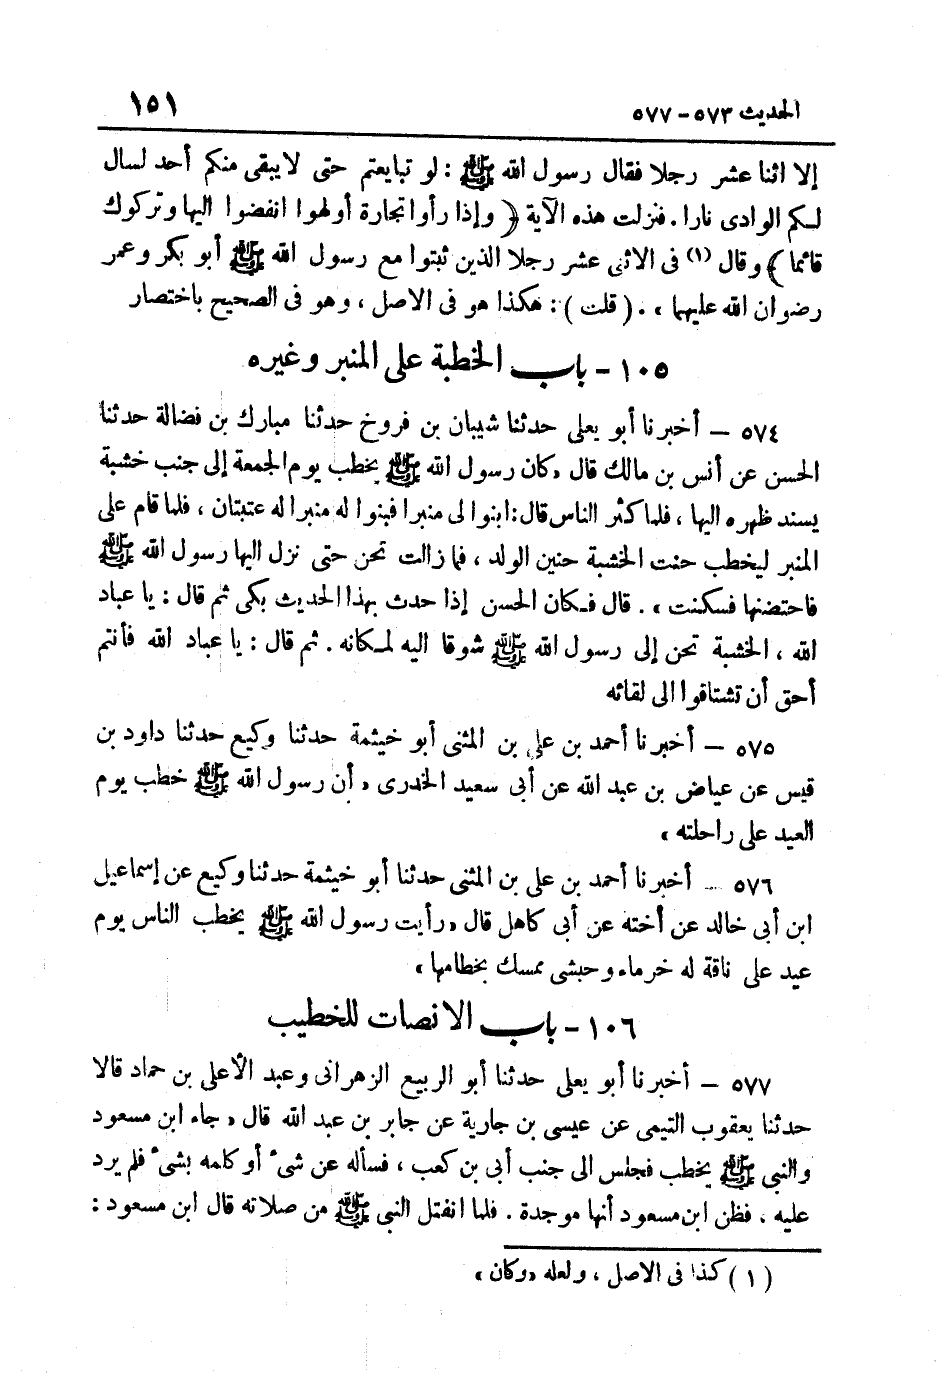 الحديث ٥٧٣ - ٥٧٧ ١٥١
إلا اثنا عشر رجلا فقال رسول الله ﷺ : لو تبايعتم حتى لا يبقى منكم أحد لسال
لكم الوادى نارا . فنزلت هذه الآية ﴿ وإذا رأوا تجارة أو لهوا انفضوا اليها وتركوك
قائما ﴾ وقال (١) فى الاثنى عشر رجلا الذين ثبتوا مع رسول الله ﷺ أبو بكر وعمر
رضوان الله عليهما » . ( قلت ) : هكذا هو فى الاصل ، وهو فى الصحيح باختصار
١٠٥ - باب الخطبة على المنبر وغيره
٥٧٤ – أخبرنا أبو يعلى حدثنا شيبان بن فروخ حدثنا مبارك بن فضالة حدثنا
الحسن عن أنس بن مالك قال « كان رسول الله ﷺ يخطب يوم الجمعة إلى جنب خشبة
يسند ظهره اليها ، فلما كثر الناس قال : ابنوا لى منبرا فبنوا له منبرا له عتبتان ، فلما قام على
المنبر ليخطب حنت الخشبة حنين الولد ، فما زالت تحن حتى نزل اليها رسول الله ﷺ
فاحتضنها فسكنت » . قال فكان الحسن إذا حدث بهذا الحديث بكى ثم قال : يا عباد
الله ، الخشبة تحن إلى رسول الله ﷺ شوقا اليه لمكانه . ثم قال : يا عباد الله فأنتم
أحق أن تشتاقوا الى لقائه
٥٧٥ – أخبرنا أحمد بن على بن المثنى أبو خيثمة حدثنا وكيع حدثنا داود بن
قيس عن عياض بن عبد الله عن أبى سعيد الخدرى « أن رسول الله ﷺ خطب يوم
العيد على راحلته »
٥٧٦ – أخبرنا أحمد بن على بن المثنى حدثنا أبو خيثمة حدثنا وكيع عن إسماعيل
ابن أبى خالد عن أخته عن أبى كاهل قال « رأيت رسول الله ﷺ يخطب الناس يوم
عيد على ناقة له خرماء وحبشى ممسك بخطامها »
١٠٦ - باب الانصات للخطيب
٥٧٧ – أخبرنا أبو يعلى حدثنا أبو الربيع الزهرانى وعبد الأعلى بن حماد قالا
حدثنا يعقوب التيمى عن عيسى بن جارية عن جابر بن عبد الله قال « جاء ابن مسعود
والنبى ﷺ يخطب فجلس الى جنب أبى بن كعب ، فسأله عن شىء أو كلمه بشىء فلم يرد
عليه ، فظن ابن مسعود أنها موجدة . فلما انفتل النبى ﷺ من صلاته قال ابن مسعود :
( ١ ) كذا فى الاصل ، ولعله « وكان »